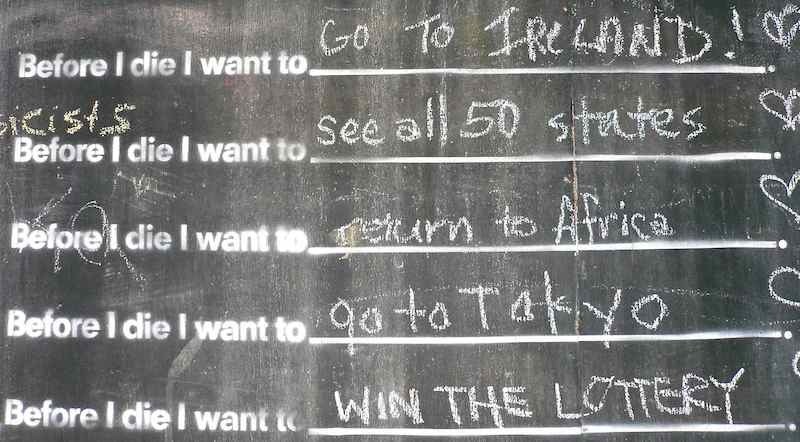 Before I die I want to GO TO IRELAND!
Before I die I want to see all 50 states
Before I die I want to return to Africa
Before I die I want to go to Tokyo
Before I die I want to WIN THE LOTTERY